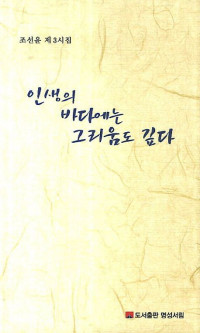 조선윤 제3시집
인생의
바다에는
그리움도 깊다
도서출판 명성서림